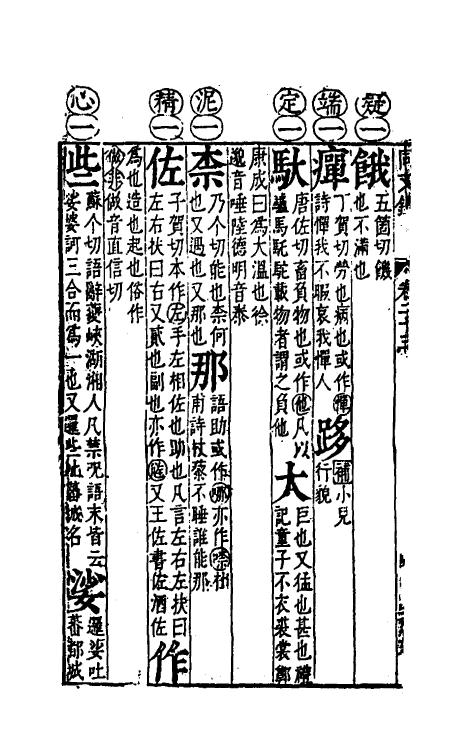 疑一
餓五箇切饑也不滿也
端一
癉丁賀切勞也病也或作憚詩憚我不暇哀我憚人跢補小兒行貌
定一
馱唐佐切畜負物也或作他凡以驢馬駝馱載物者謂之負他大巨也又猛也甚也禮記童子不衣裘裳鄭
康成曰爲大溫也徐邈音唾陸德明音泰
泥一
柰乃个切能也柰何也又遇也又那也那語助或作亦作杜甫詩杖藜不睡誰能那
精一
佐子賀切本作左手左相佐也助也凡言左右左扶曰左右扶曰右又貳也副也亦作又王佐書佐酒佐作
爲也造也起也俗作做非做音直信切
心一
些蘇个切語辭夔峽湖湘人凡禁呪語末皆云娑婆訶三合而爲一也又邏些吐蕃城名娑邏娑吐蕃都城